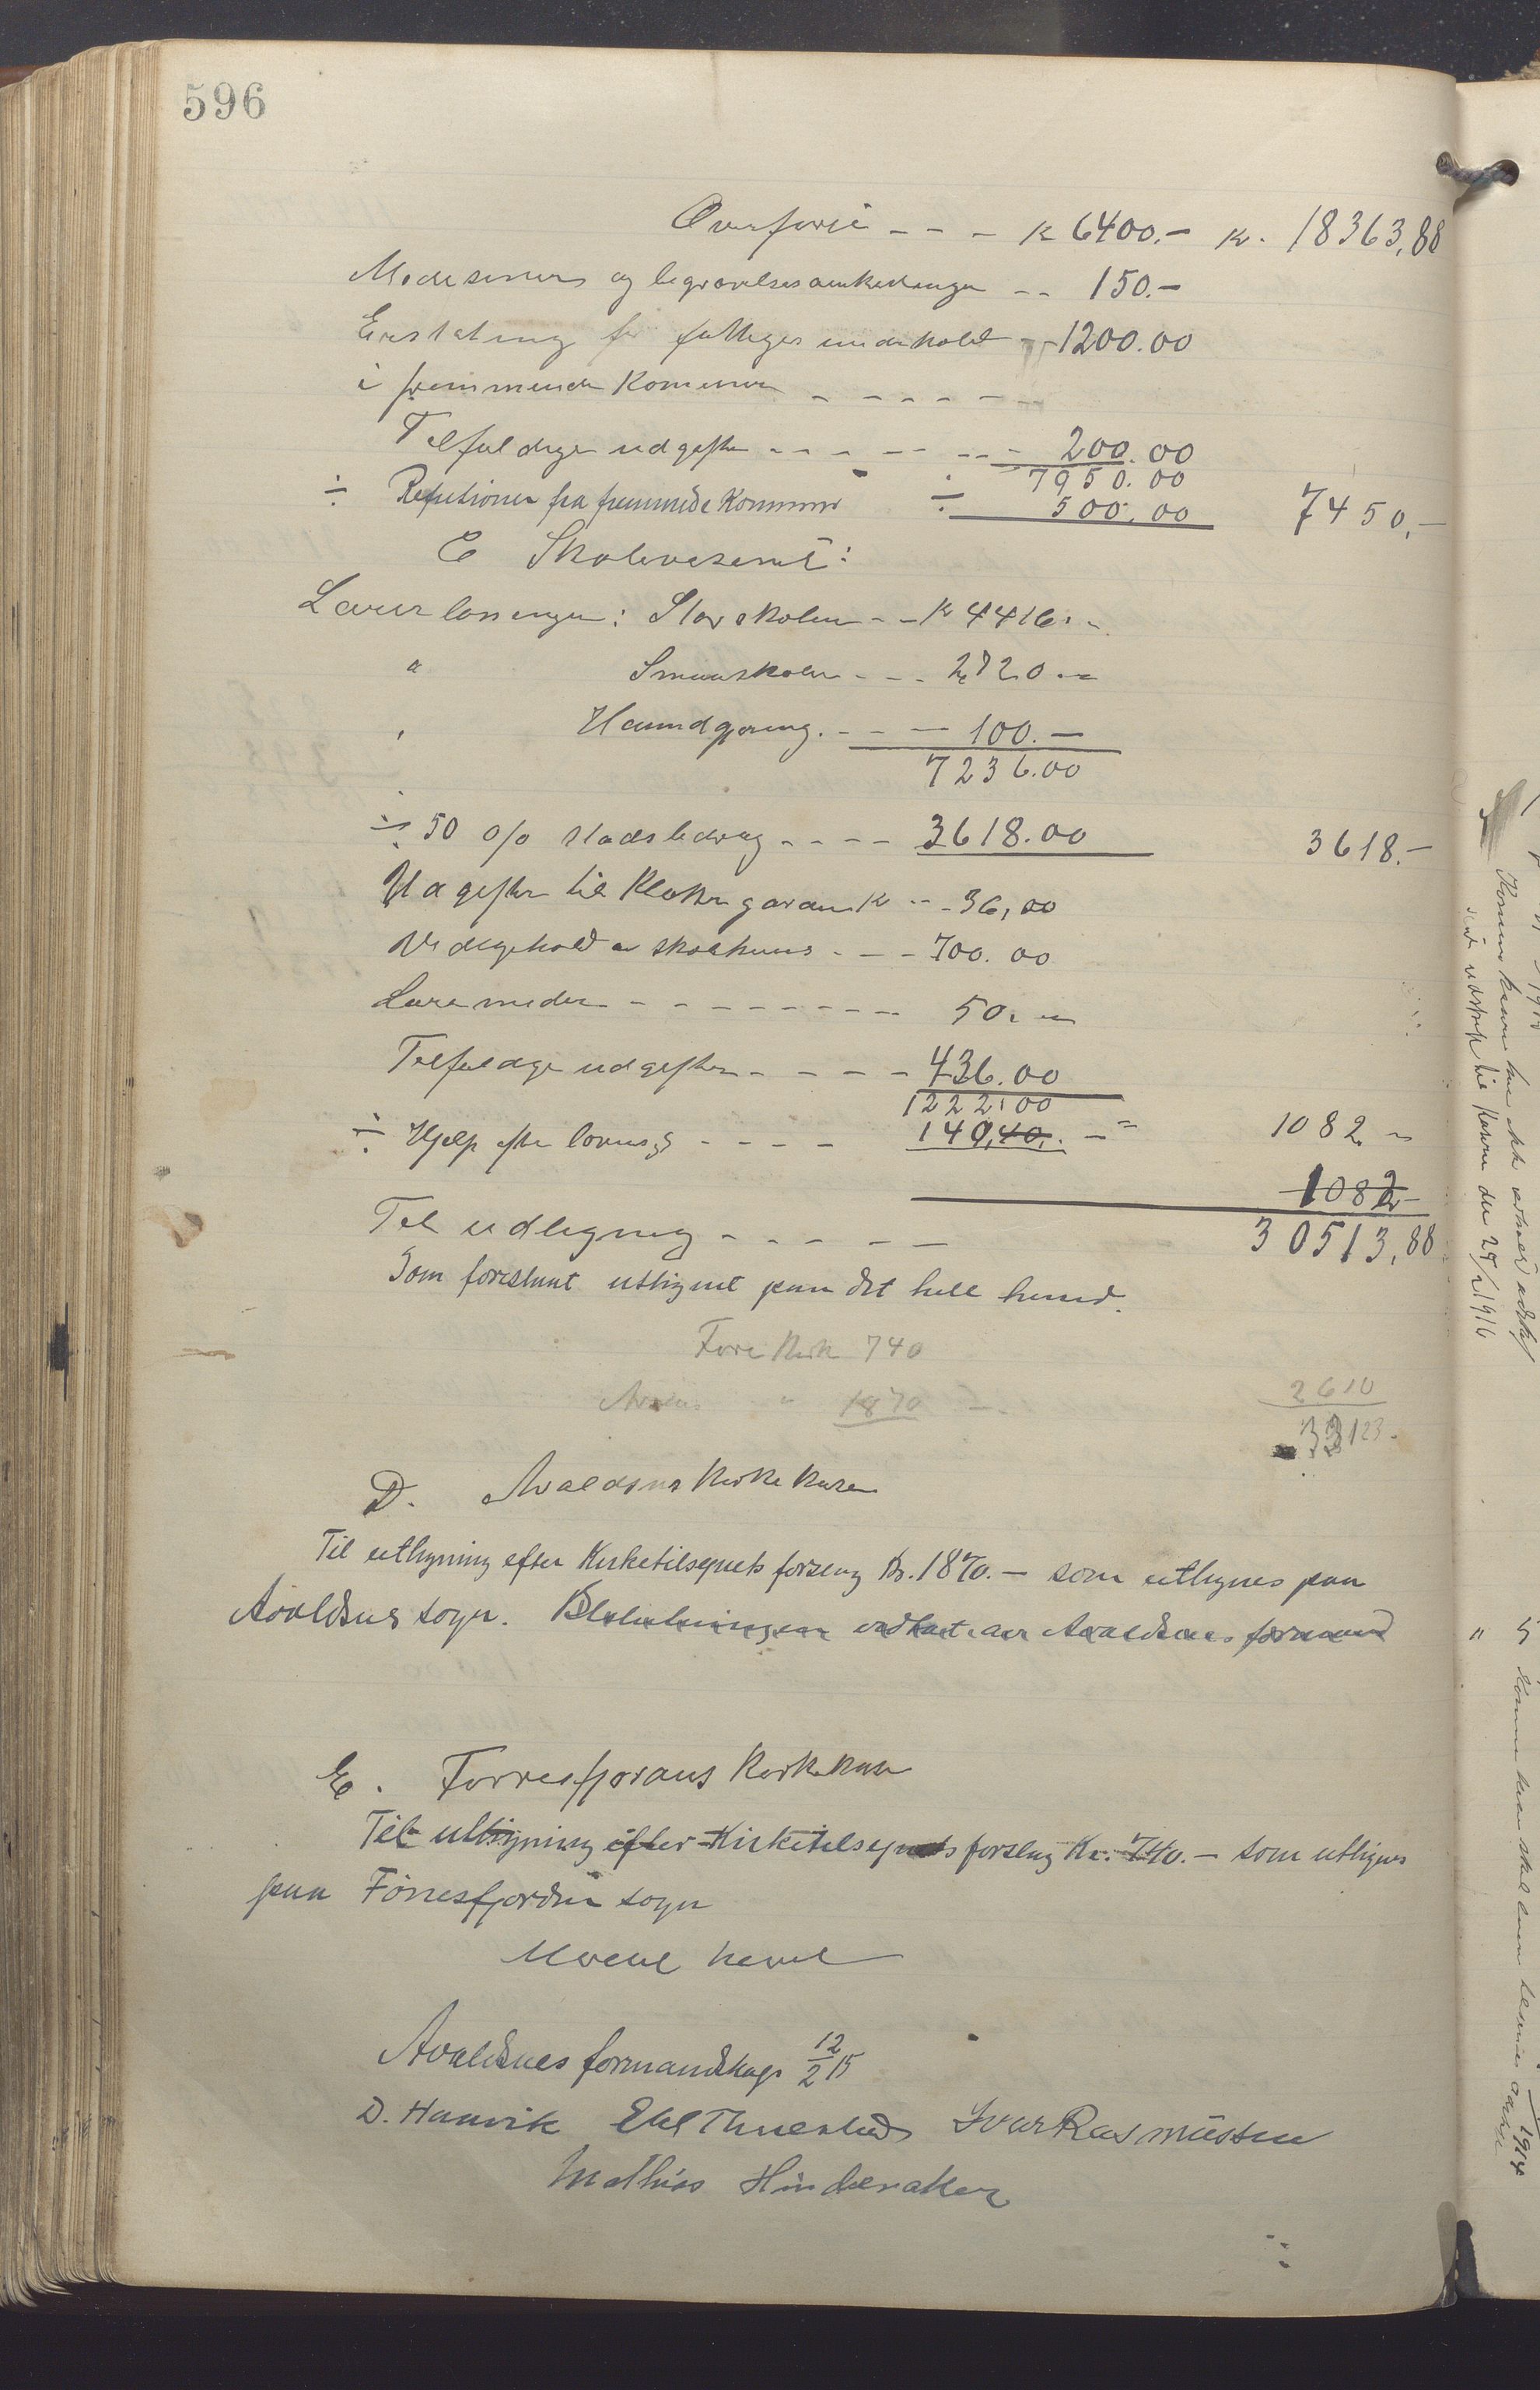 596
Overført - - - K 6400.- Kr. 18363,88
Medesiner og begravelses omkostninger - - 150.-
Erstatning for fattiges underhold - - 1200.00
i fremmende Komuner - - - - - -
Tilfeldige udgifter - - - - - - - 200.00
7950.00
÷ Refutioner fra fremmede Kommuner ÷ 500.00 7450,-
C Skolevesenet:
Lærerlønninger: Storskolen - - Kr 4416.-
" Smaaskolen - - - 2720.-
" Haandgjering. - - - 100.-
7236.00
÷ 50 o/o stadsbedrag - - - - 3618.00 3618.-
Udgifter til Klokkergarden K - - 36,00
Vedlighold av skolehuus - - - 700.00
Læremider - - - - - - - - 50.-
Tilfeldige udgifter - - - - - 436.00
1222.00
÷ Hjelp efter lovens § - - - - 140,40. - " 1082 -
1082-
Til udligning - - - - - 30513,88
Som foreslaat utlignet paa det hele herred.
Føre Kirk 740
" 1870 - 2610
33123.-
D. Avaldsnes Kirkekasse
Til utligning efter Kirketilsynets forslag Kr. 1870.- som utlignes paa
Avaldsnes sogn. Beslutningen vedtat av Avaldsnes formand
E. Førresfjorans Kirkekasse
Til utligning efter Kirketilsynets forslag Kr. 740.- som utlignes
paa Førresfjorden sogn
Møtet hevet
Avaldsnes formandskap 12/2 15
D. Hauvik Ivar Rasmussen
Mathias Hinderaker